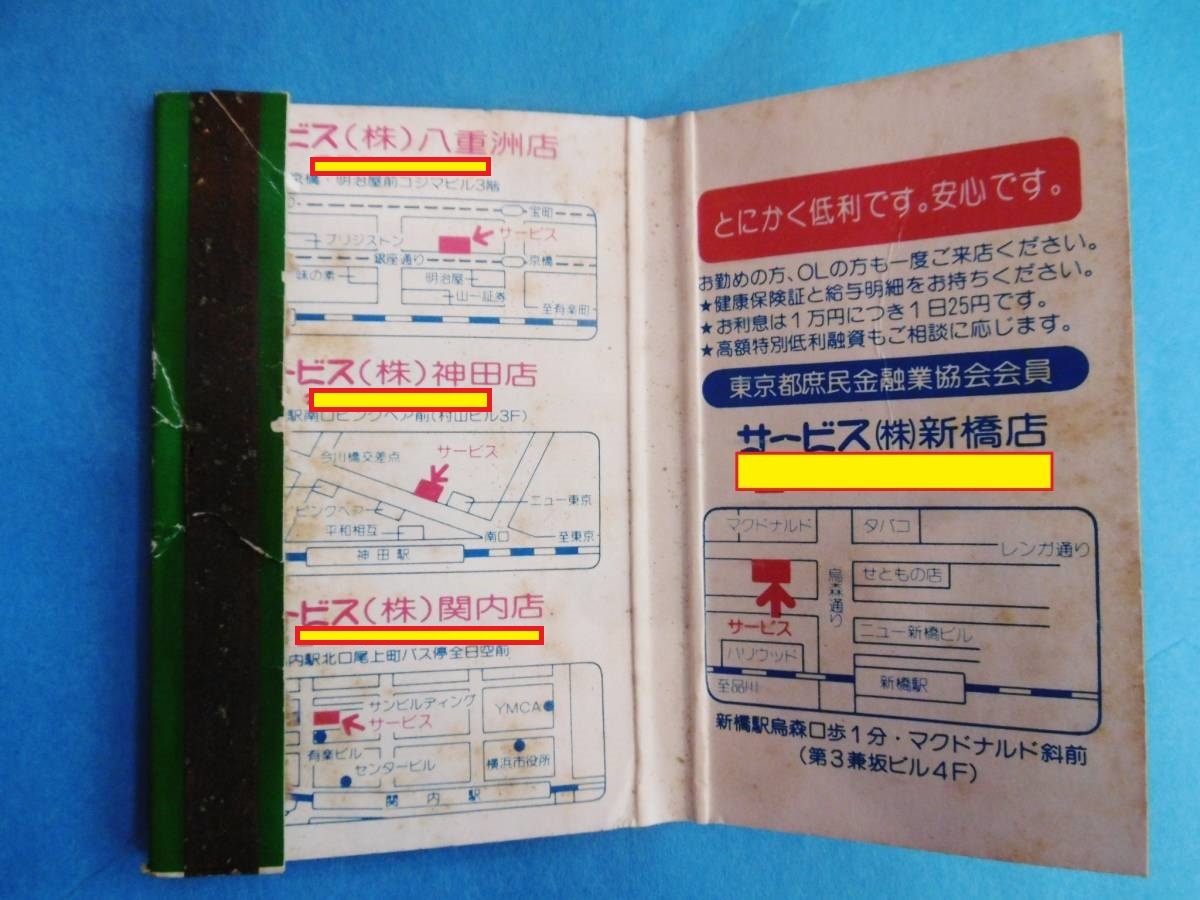 ビス(株)八重洲店
京橋・明治屋前コジマビル3階
宝町
ブリジストン
サービス
銀座通り
京橋
味の素
明治屋
山一証券
至有楽町
ービス(株)神田店
駅南口ピンクベア前(村山ビル3F)
今川橋交差点
サービス
ピンクベアー
ニュー東京
平和相互
南口
至東京
神田駅
ービス(株)関内店
内駅北口尾上町バス停全日空前
サンビルディング
YMCA
サービス
有楽ビル
センタービル
横浜市役所
関内駅
とにかく低利です。安心です。
お勤めの方、OLの方も一度ご来店ください。
★健康保険証と給与明細をお持ちください。
★お利息は1万円につき1日25円です。
★高額特別低利融資もご相談に応じます。
東京都庶民金融業協会会員
サービス(株)新橋店
マクドナルド
タバコ
レンガ通り
烏森通り
せともの店
サービス
ニュー新橋ビル
ハリウッド
至品川
新橋駅
新橋駅烏森口歩1分・マクドナルド斜前
(第3兼坂ビル4F)